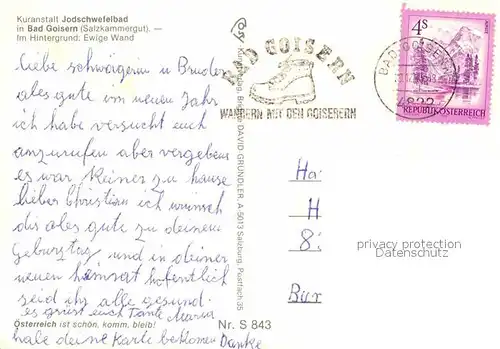 Kuranstalt Jodschwefelbad
in Bad Goisern (Salzkammergut). —
Im Hintergrund: Ewige Wand
liebe schwägerin u Bruder
ales gute im neuen Jahr
ich habe versucht euch
anzurufen aber vergebens
es war keiner zu hause
lieber Christian ich wunsch
dir ales gute zu deinem
Geburztag und in deiner
neuen heimat hofentlich
seid ihr alle gesund.
es grüst euch Tante Maria
Österreich ist schön, komm, bleib!
Nr. S 843
habe deine Karte bekomen Danke
Kunstverlag, DAVID GRÜNDLER, A-5013 Salzburg, Postfach 35
BAD GOISERN
WANDERN MIT DEN GOISERERN
BAD GOISERN
4822
4S
REPUBLIK ÖSTERREICH
Ha
H
8
Bür
privacy protection
Datenschutz